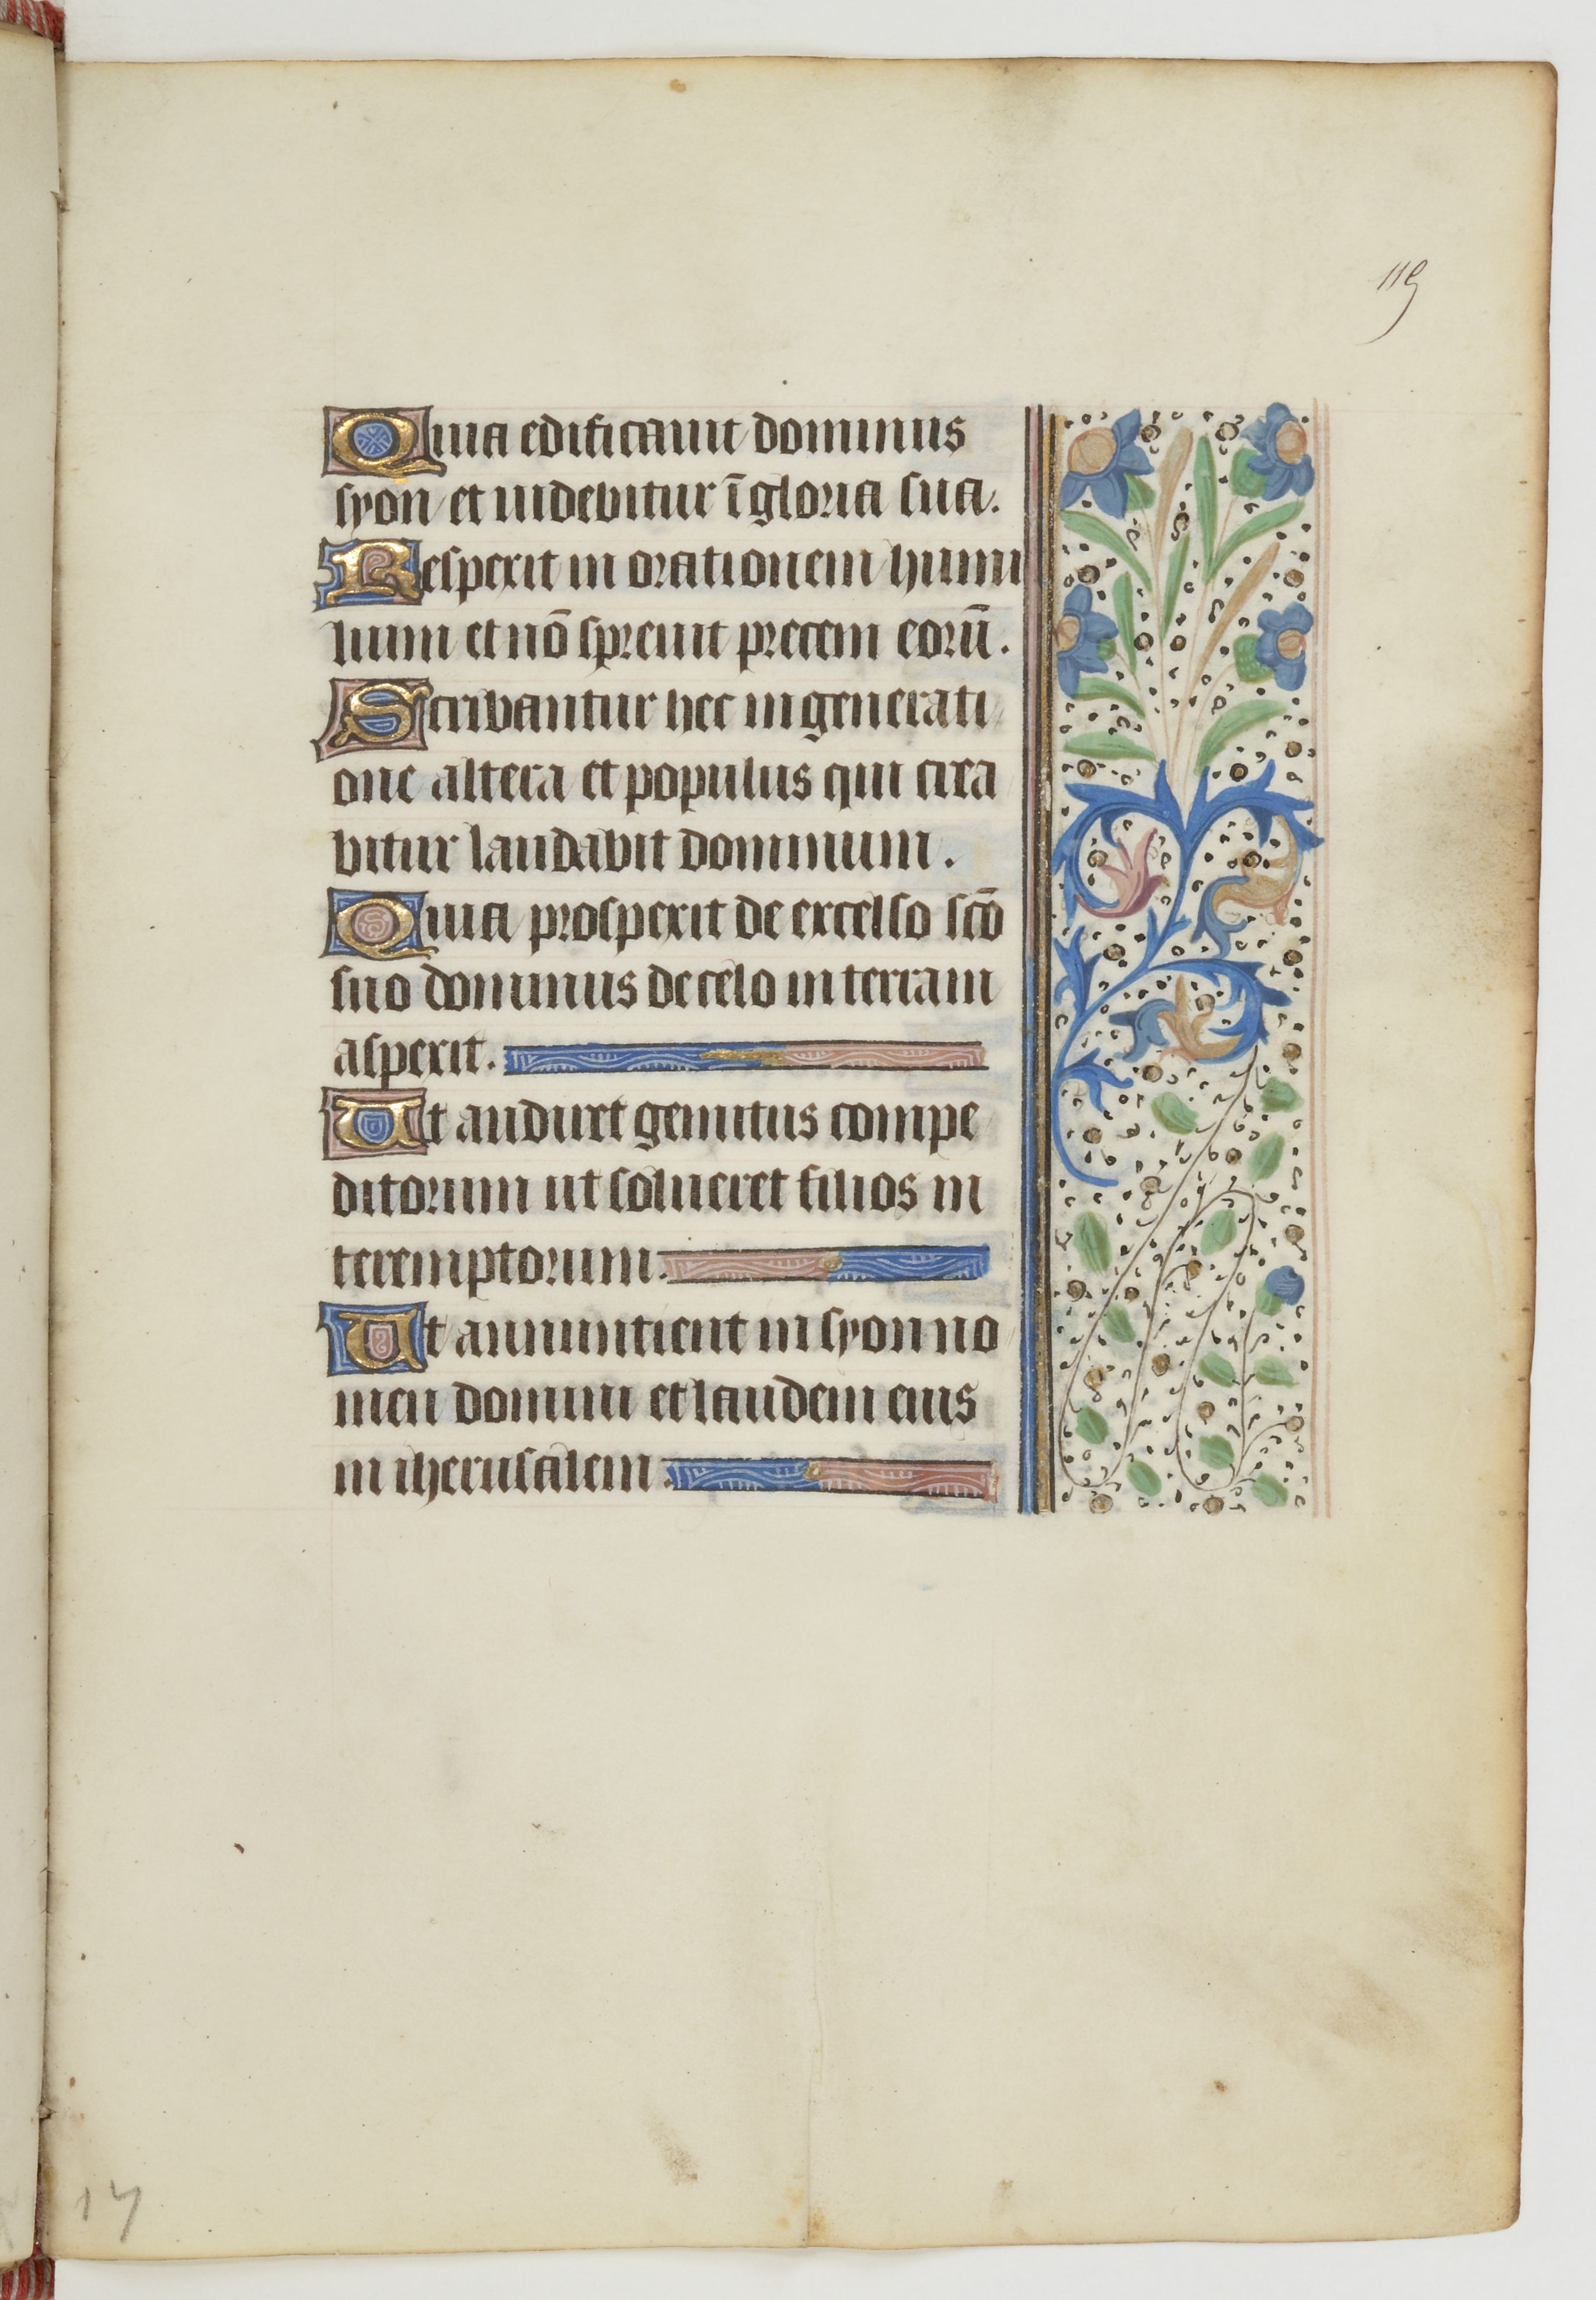 119
Quia edificauit dominus
syon et uidebitur ī gloria sua.
Respexit in orationem humi
lium et nō spreuit precem eorū.
Scribantur hec in generati
one altera et populus qui crea
bitur laudabit dominum.
Quia prospexit de excelso scō
suo dominus de celo in terram
aspexit.
Ut audiret gemitus compe
ditorum ut solueret filios in
teremptorum.
Ut annuntient in syon no
men domini et laudem eius
in iherusalem.